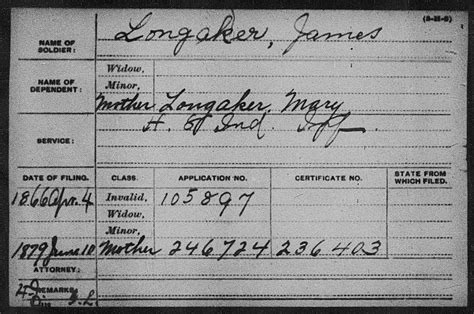 (3-H-6)
NAME OF SOLDIER: Longaker, James
NAME OF DEPENDENT: Widow,
Minor,
Mother Longaker, Mary
SERVICE: H. Ind. Inf.
DATE OF FILING. CLASS. APPLICATION NO. CERTIFICATE NO. STATE FROM WHICH FILED.
1866 Apr. 4 Invalid, 105897
Widow,
Minor,
1879 June 10 Mother 246724 236403
ATTORNEY:
REMARKS: